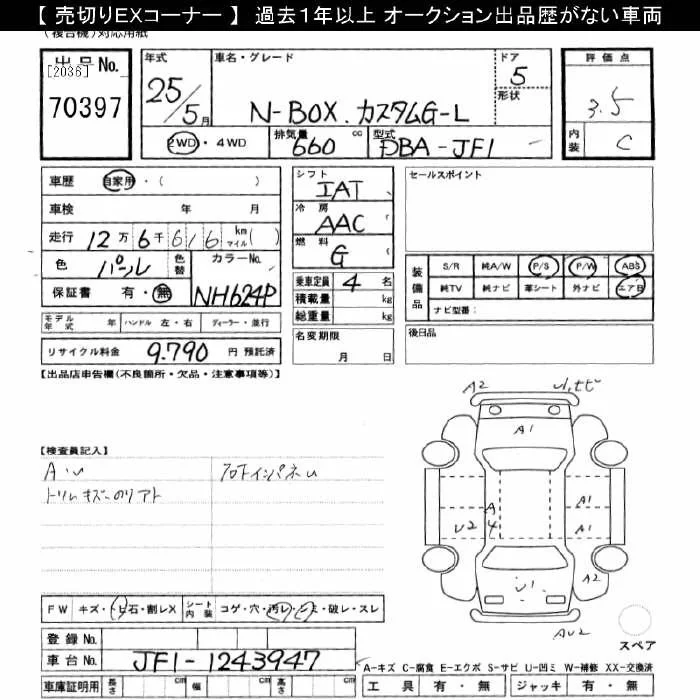 【 売切りEXコーナー 】 過去1年以上 オークション出品歴がない車両
(複合機)対応用紙
出品No.
[2036]
70397
年式
25/5月
車名・グレード
N-BOX.カスタムG-L
ドア
5
形状
評価点
3.5
内装
C
2WD・4WD
排気量
660 cc
型式
DBA-JF1
車歴 自家用・( )
車検 年 月
走行 12万6千616 km マイル( )
色 パール 色替
カラーNo.
NH624P
保証書 有・無
シフト
IAT
冷房
AAC
燃料
G
乗車定員 4 名
積載量 kg
総重量 kg
セールスポイント
装備品
S/R 純A/W P/S P/W ABS
純TV 純ナビ 革シート 外ナビ エアB
ナビ型番:
モデル年式 年 ハンドル 左・右 ディーラー・並行
リサイクル料金 9.790 円 預託済
名変期限
月 日
後日品
【出品店申告欄(不良箇所・欠品・注意事項等)】
A2
A1
【検査員記入】
A・U
フロントインパネU
トリムキズ
A
4
U2
A1
A1
U1
A2
AU2
FW キズ・トビ石・割レX シート内装 コゲ・穴・汚レ・シミ・破レ・スレ
スペア
登録No.
車台No. JF1-1243947
A-キズ C-腐食 E-エクボ S-サビ U-凹ミ W-補修 XX-交換済
車庫証明用 長さ cm 幅 cm 高さ cm
工具 有・無 ジャッキ 有・無